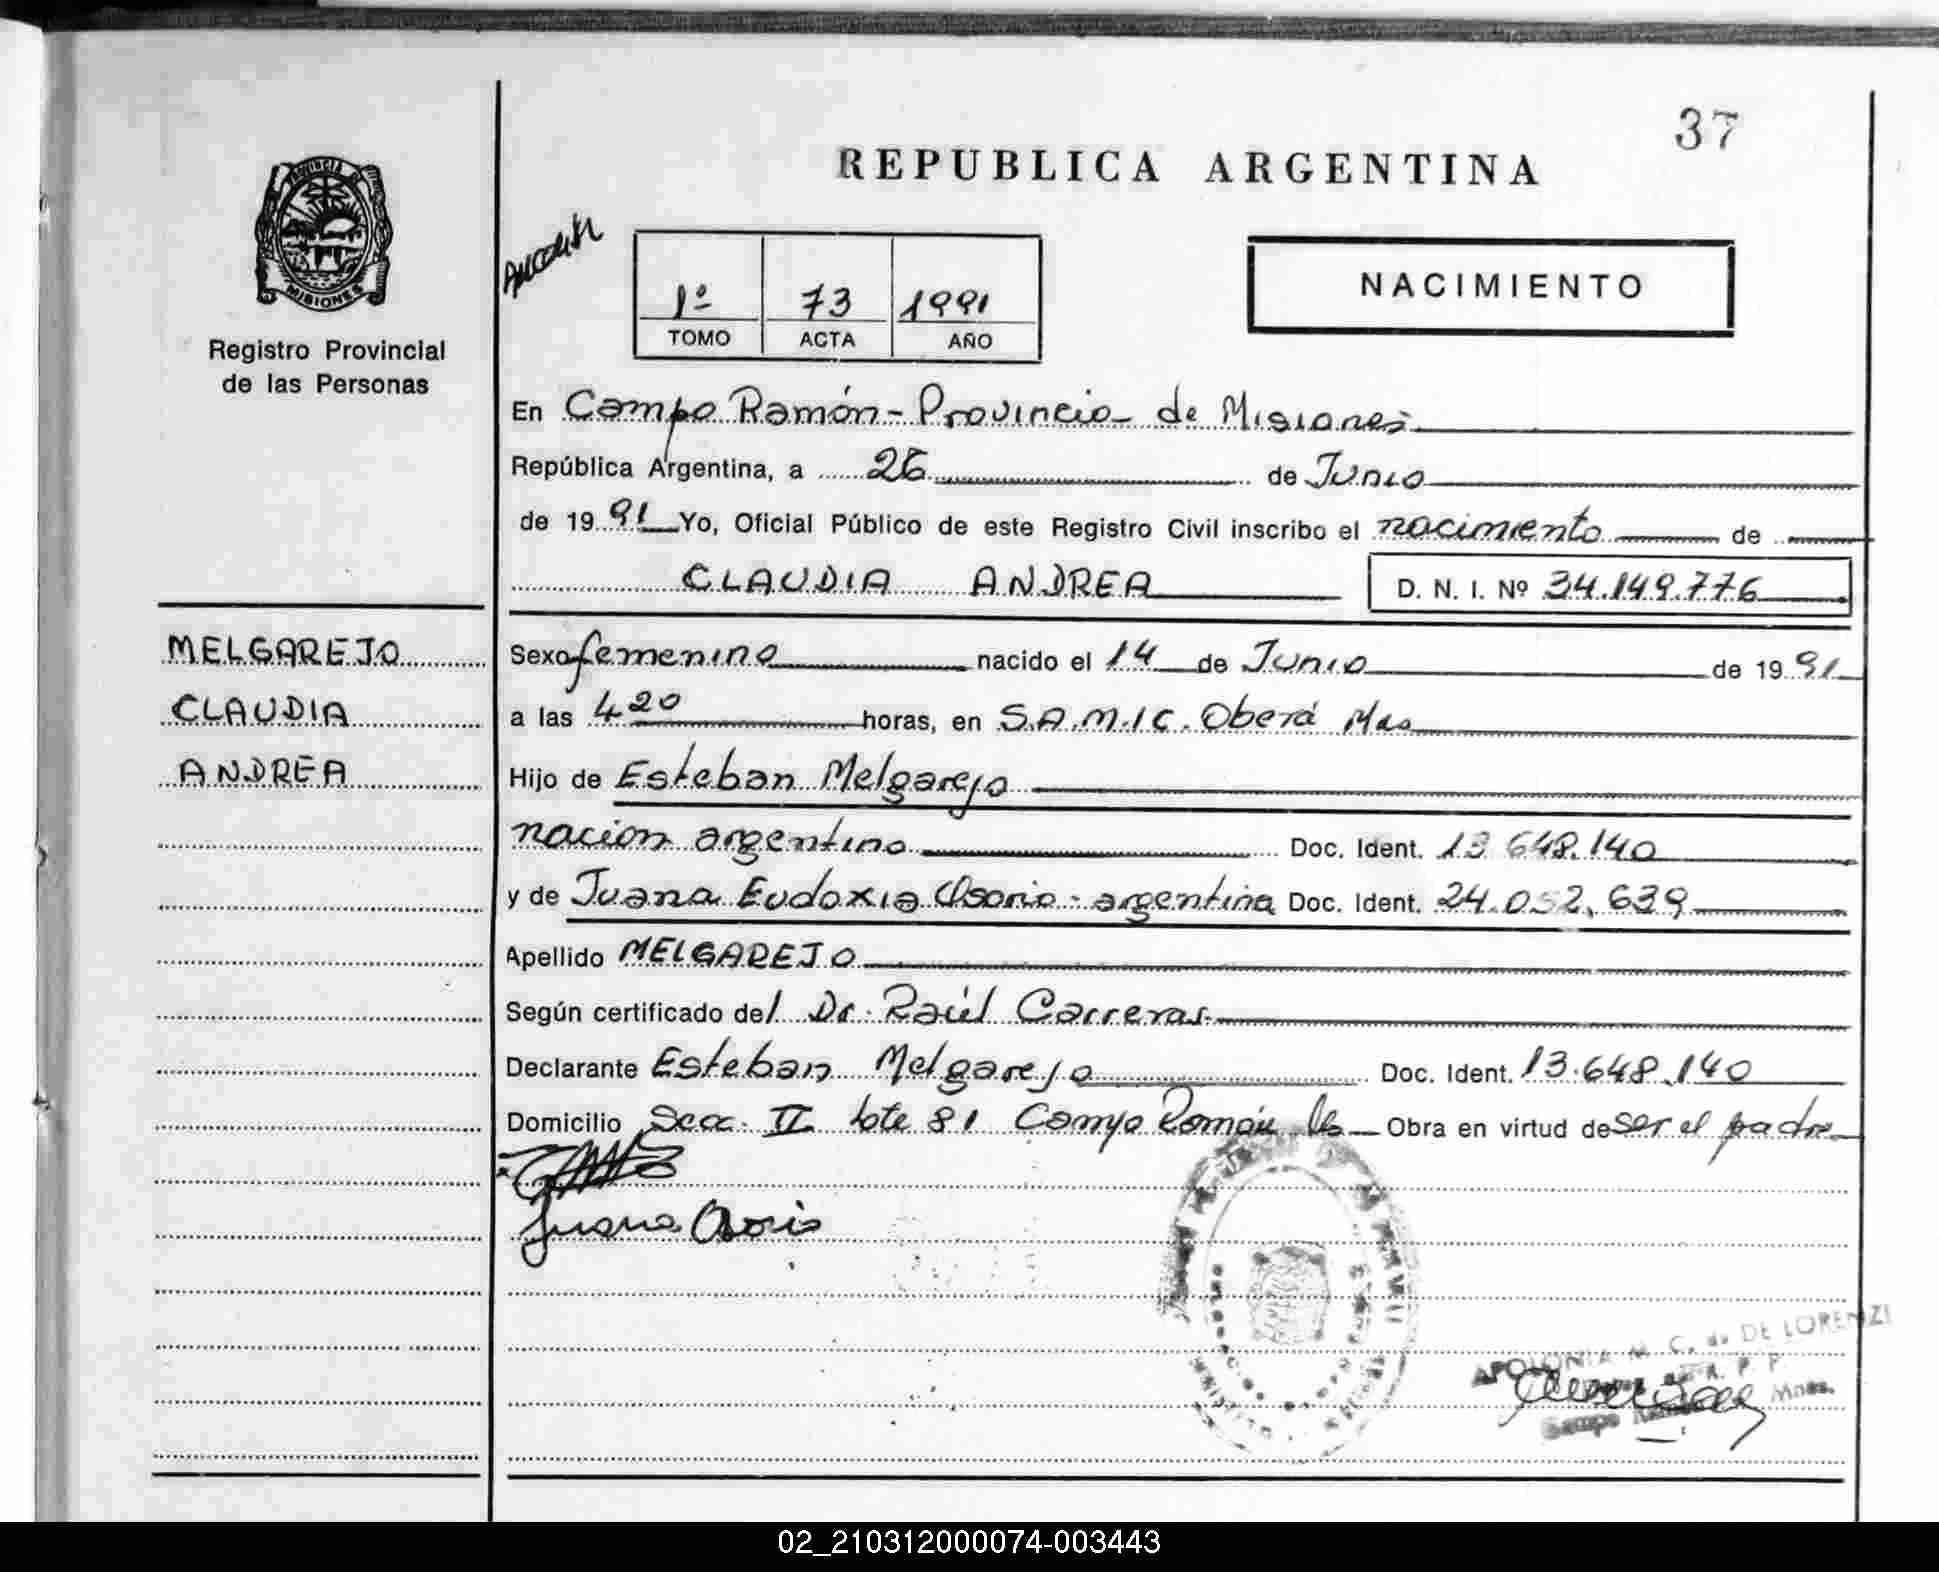 37
REPUBLICA ARGENTINA
PROVINCIA DE
MISIONES
Registro Provincial
de las Personas
1º 73 1991
TOMO ACTA AÑO
NACIMIENTO
En Campo Ramón - Provincia de Misiones
República Argentina, a 26 de Junio
de 1991 Yo, Oficial Público de este Registro Civil inscribo el nacimiento de
CLAUDIA ANDREA D. N. I. Nº 34.149.776
MELGAREJO
CLAUDIA
ANDREA
Sexo femenino nacido el 14 de Junio de 1991
a las 4 20 horas, en S.A.M.I.C. Oberá Mns
Hijo de Esteban Melgarejo
nacion argentino Doc. Ident. 13 648.140
y de Juana Eudoxia Osorio - argentina Doc. Ident. 24.052.639
Apellido MELGAREJO
Según certificado del Dr. Raúl Carreras
Declarante Esteban Melgarejo Doc. Ident. 13.648.140
Domicilio Secc. II lote 81 Campo Ramón Obra en virtud de ser el padre
Juana Osorio
APOLONIA M. C. de DE LORENZI
R. P. P.
Campo Mnes.
02_210312000074-003443